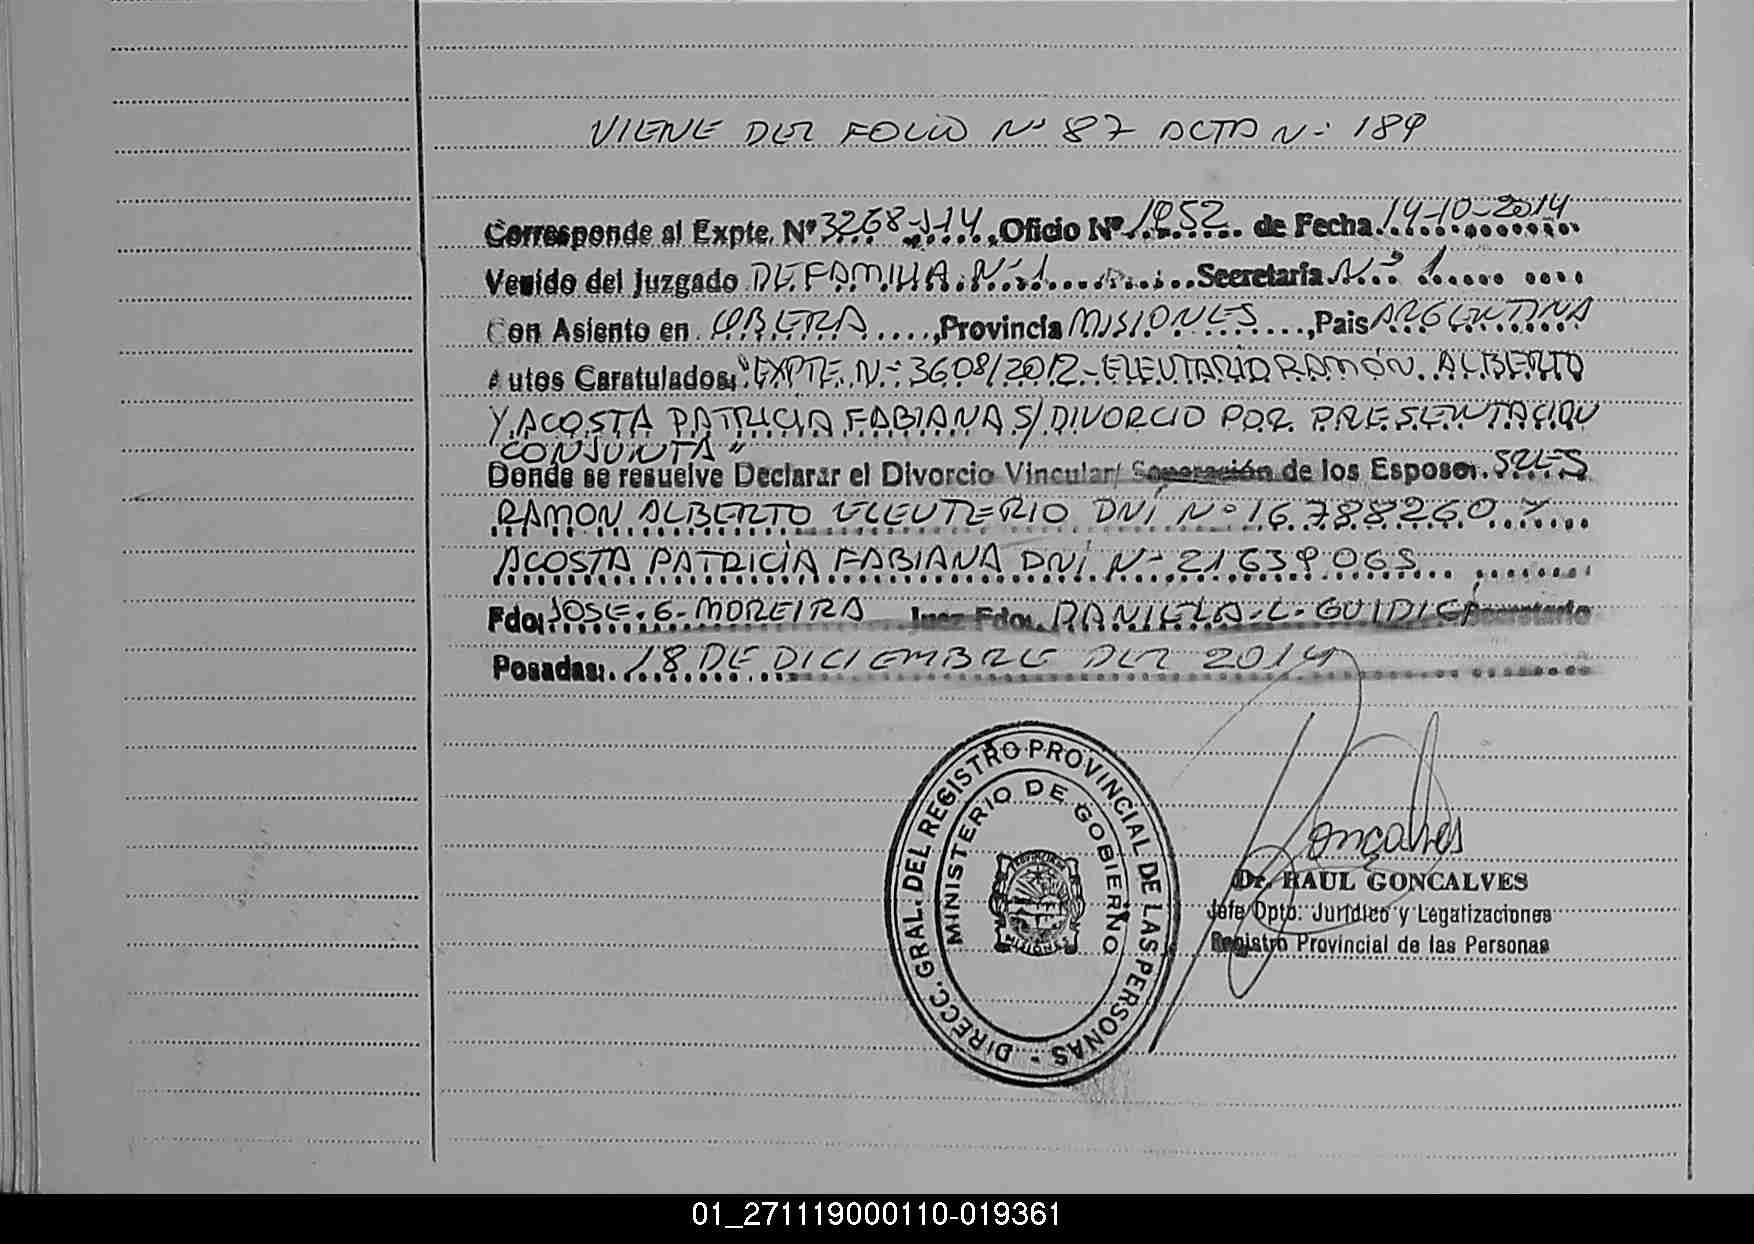 VIENE DEL FOLIO Nº 87 ACTA Nº 189
Corresponde al Expte. Nº 3268-J-14, Oficio Nº 1952 de Fecha 14-10-2014
Venido del Juzgado DE FAMILIA Nº 1 Secretaria Nº 1
Con Asiento en OBERA, Provincia MISIONES, Pais ARGENTINA
Autos Caratulados: "EXPTE. Nº 3608/2012- ELEUTARIO RAMÓN ALBERTO
Y ACOSTA PATRICIA FABIANA S/ DIVORCIO POR PRESENTACION
CONJUNTA"
Donde se resuelve Declarar el Divorcio Vincular/ Separación de los Esposos SRES
RAMON ALBERTO ELEUTERIO DNI Nº 16.788260 Y
ACOSTA PATRICIA FABIANA DNI Nº 21639065
Fdo: JOSE-G-MOREIRA Juez Fdo. DANIELA-L-GUIDICI Secretario
Posadas: 18 DE DICIEMBRE DEL 2014
DIRECC. GRAL. DEL REGISTRO PROVINCIAL DE LAS PERSONAS -
MINISTERIO DE GOBIERNO
MISIONES
Goncalves
Dr. RAUL GONCALVES
Jefe Dpto. Jurídico y Legalizaciones
Registro Provincial de las Personas
01_271119000110-019361